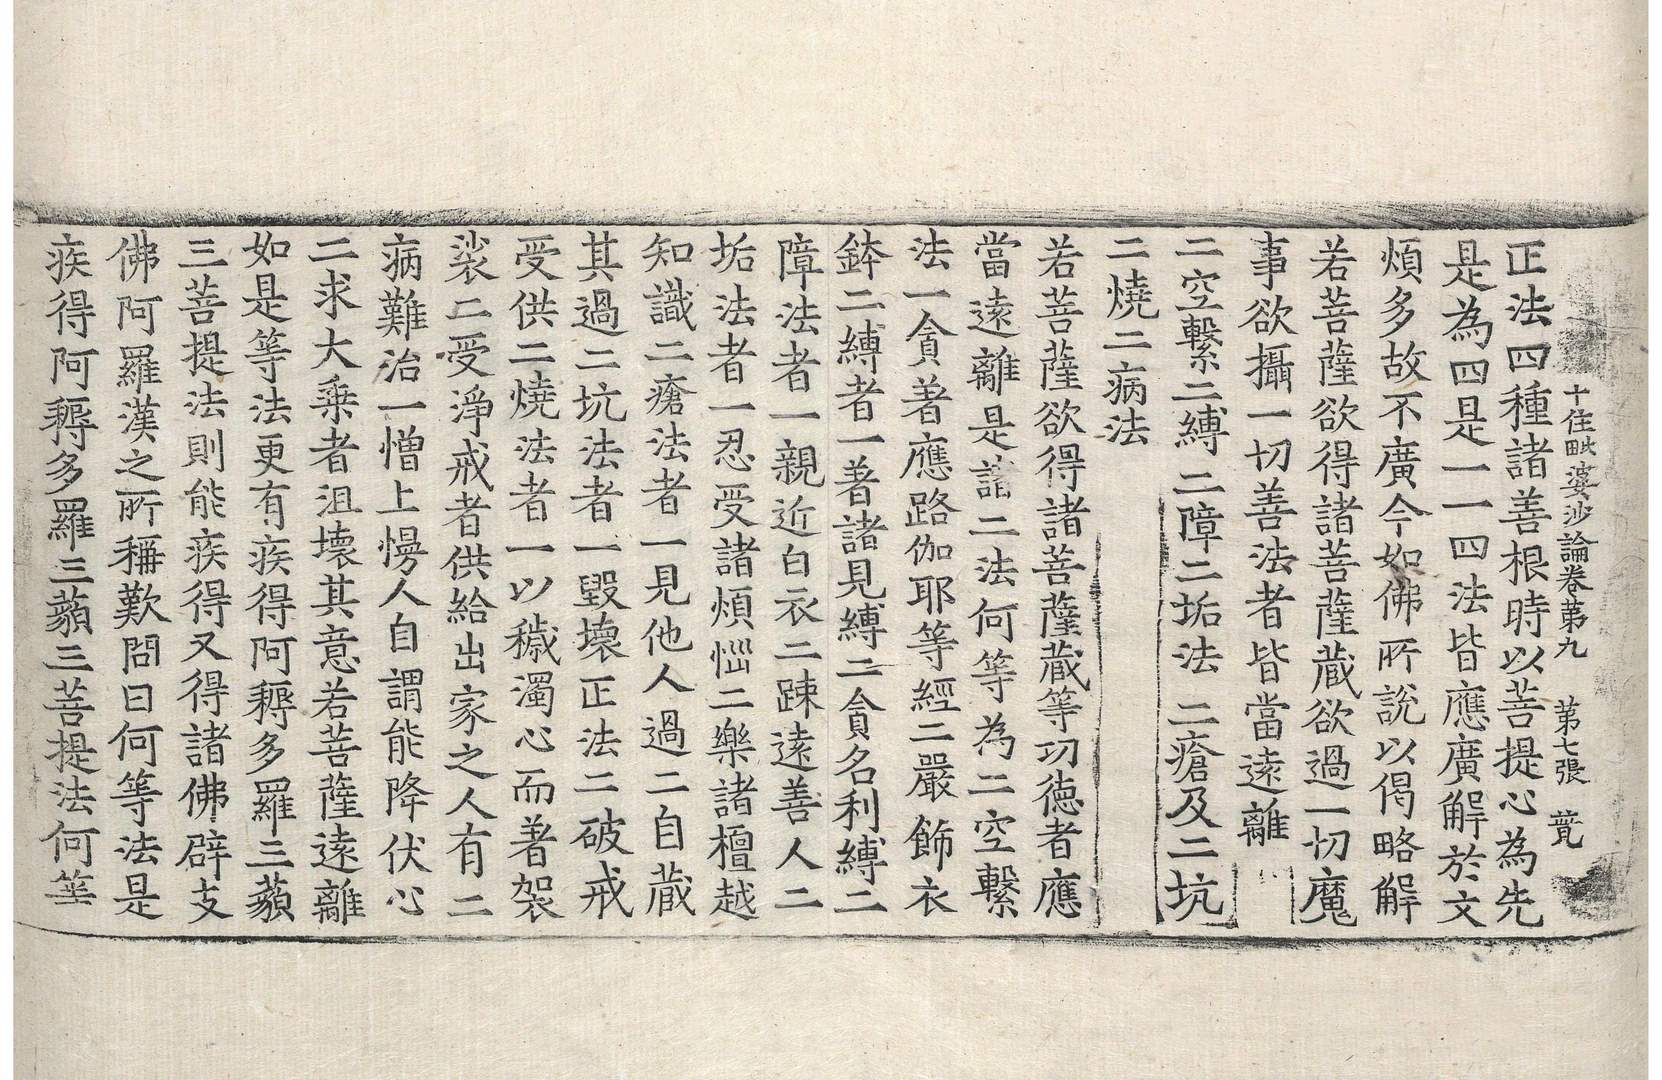 十住毗婆沙論卷苐九　苐七張　㲋
正法四種諸善根時以菩提心為先
是為四是一一四法皆應廣解於文
煩多故不廣今如佛所說以偈略解
若菩薩欲得諸菩薩藏欲過一切魔
事欲攝一切善法者皆當遠離
二空繫二縛　二障二垢法　二瘡及二坑
二燒二病法
若菩薩欲得諸菩薩藏等功德者應
當遠離是諸二法何等為二空繫
法一貪著應路伽耶等經二嚴飾衣
鉢二縛者一著諸見縛二貪名利縛二
障法者一親近白衣二踈遠善人二
垢法者一忍受諸煩惱二樂諸檀越
知識二瘡法者一見他人過二自藏
其過二坑法者一毀壞正法二破戒
受供二燒法者一以穢濁心而著袈
裟二受淨戒者供給出家之人有二
病難治一憎上慢人自謂能降伏心
二求大乘者沮壞其意若菩薩遠離
如是等法更有疾得阿耨多羅三藐
三菩提法則能疾得又得諸佛辟支
佛阿羅漢之所稱歎問曰何等法是
疾得阿耨多羅三藐三菩提法何等